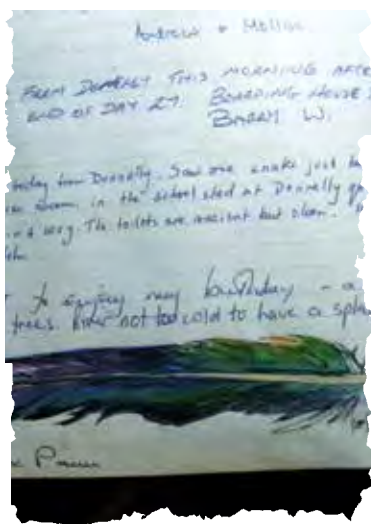 Andrew & Mollie
FROM DONNELLY THIS MORNING AFTE
END OF DAY 27. BOARDING HOUSE
BARRY W.
today from Donnelly. Saw one snake just
room, in the school shed at Donnelly
and cosy. The toilets are ancient but clean.
enjoying my birthday - a
trees. River not too cold to have a spla